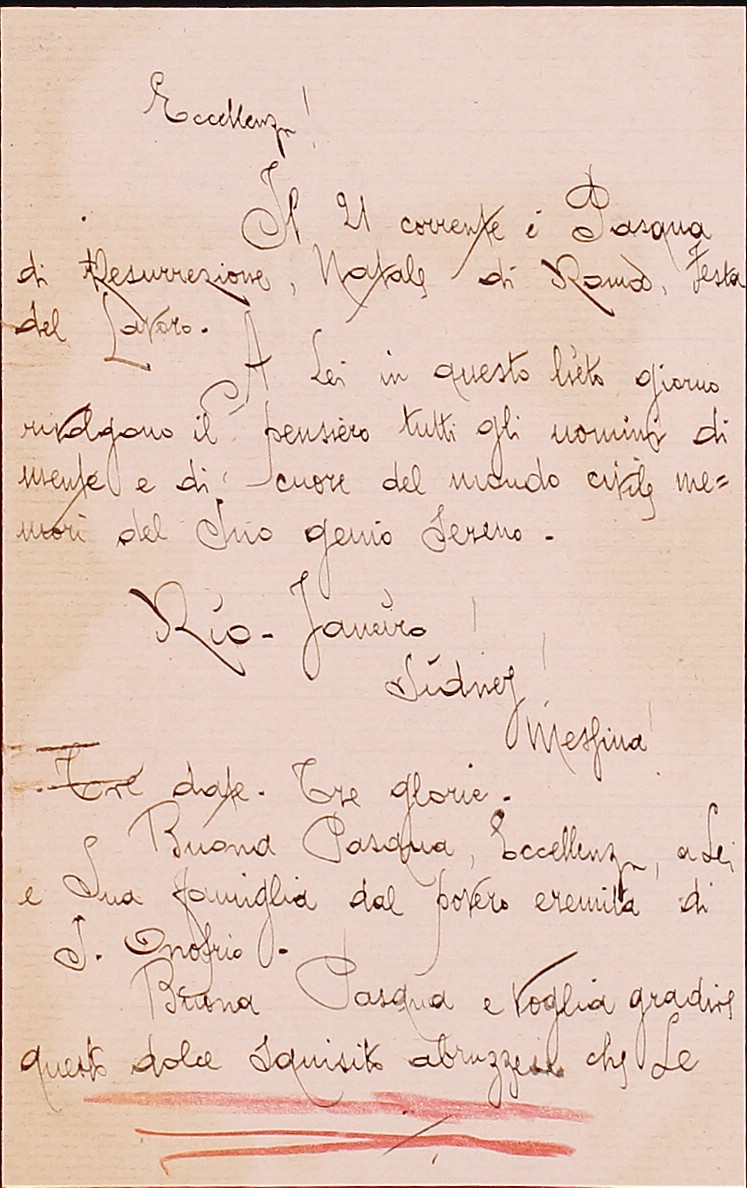 Eccellenza!
Il 21 corrente è Pasqua
di Resurrezione, Natale di Roma, Festa
del Lavoro.
A Lei in questo lieto giorno
rivolgono il pensiero tutti gli uomini di
mente e di cuore del mondo civile me=
mori del Suo genio sereno.
Rio-Janeiro!
Sidney!
Messina!
Tre date. Tre glorie.
Buona Pasqua, Eccellenza, a Lei
e Sua famiglia dal povero eremita di
S. Onofrio.
Buona Pasqua e voglia gradire
questo dolce squisito abruzzese che Le